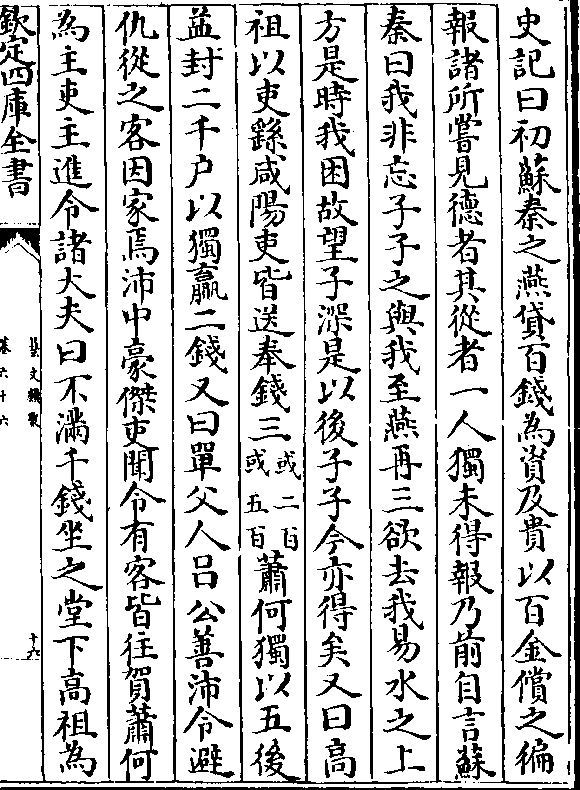 史記曰初蘇秦之燕貸百錢為資及貴以百金償之徧
報諸所嘗見德者其從者一人獨未得報乃前自言蘇
秦曰我非忘子子之與我至燕再三欲去我易水之上
方是時我困故望子深是以後子子今亦得矣又曰高
祖以吏繇咸陽吏皆送奉錢三或二百或五百蕭何獨以五後
益封二千户以獨贏二錢又曰單父人呂公善沛令避
仇從之客因家焉沛中豪傑吏聞令有客皆往賀蕭何
為主吏主進令諸大夫曰不滿千錢坐之堂下高祖為
欽定四庫全書
藝文類聚
卷六十六
十六